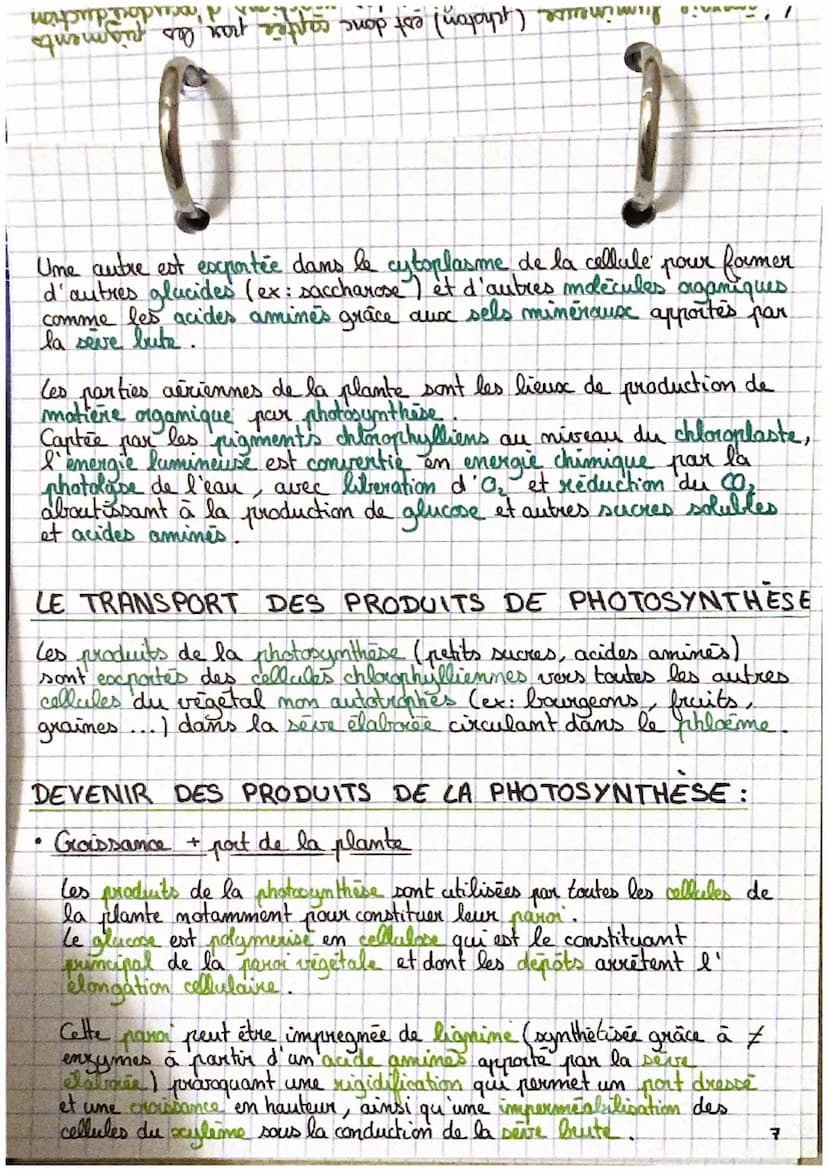 énergie lumineuse (photon) est donc captée par les pigments
d'oxydoréduction
Une autre est exportée dans le cytoplasme de la cellule pour former
d'autres glucides (ex : saccharose) et d'autres molécules organiques
comme les acides aminés grâce aux sels minéraux apportés par
la sève brute.
Les parties aériennes de la plante sont les lieux de production de
matière organique par photosynthèse.
Captée par les pigments chlorophylliens au niveau du chloroplaste,
l'énergie lumineuse est convertie en energie chimique par la
photolyse de l'eau, avec libération d'O₂ et réduction du CO₂
aboutissant à la production de glucose et autres sucres solubles
et acides aminés.
LE TRANSPORT DES PRODUITS DE PHOTOSYNTHÈSE
Les produits de la photosynthèse (petits sucres, acides aminés)
sont exportés des cellules chlorophylliennes vers toutes les autres
cellules du végétal non autotrophes (ex: bourgeons, fruits,
graines ...) dans la sève élaborée circulant dans le phloème.
DEVENIR DES PRODUITS DE LA PHOTOSYNTHÈSE :
• Croissance + port de la plante
Les produits de la photosynthèse sont utilisées par toutes les cellules de
la plante notamment pour constituer leur paroi.
Le glucose est polymerisé en cellulose qui est le constituant
principal de la paroi végétale et dont les dépôts arrêtent l'
élongation cellulaire.
Cette paroi peut être impregnée de lignine (synthétisée grâce à ≠
enzymes à partir d'un acide aminés apporté par la sève
élaborée) provoquant une rigidification qui permet un port dressé
et une croissance en hauteur, ainsi qu'une imperméabilisation des
cellules du xylème sous la conduction de la sève brute.
7